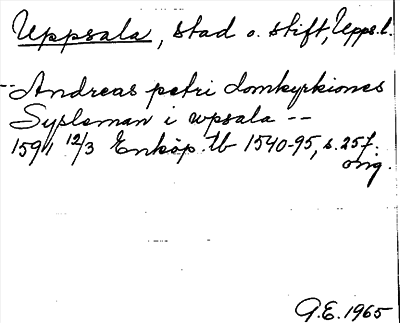 Uppsala, stad o. stift, Upps. l.
-- Andreas petri domkyrkiones
Sysloman i upsala --
1591 12/3 Enköp. tb 1540-95, s. 257.
orig.
G.E. 1965